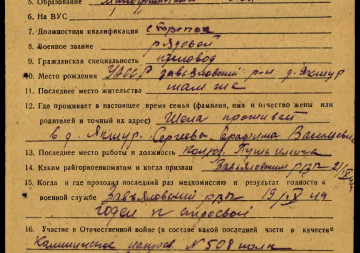 5. Образование
6. На ВУС
7. Должностная квалификация стрелок
8. Военное звание рядовой
9. Гражданская специальность
10. Место рождения УАССР Завьяловский р-н д. Якшур
11. Последнее место жительства там же
12. Где проживает в настоящее время семья (фамилия, имя и отчество жены или
родителей и точный их адрес) Жена проживает
в д. Якшур. Сергеева
13. Последнее место работы и должность
14. Каким райгорвоенкоматом и когда призван Завьяловский
15. Когда и где проходил последний раз медкомиссию и результат годности к
военной службе Завьяловский 44
годен к строевой
16. Участие в Отечественной войне (в составе какой последней части в качестве
N 508 полк